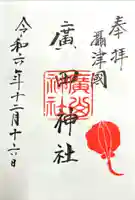 奉拝
摂津國
廣田神社
廣田
神社
令和六年十二月十六日